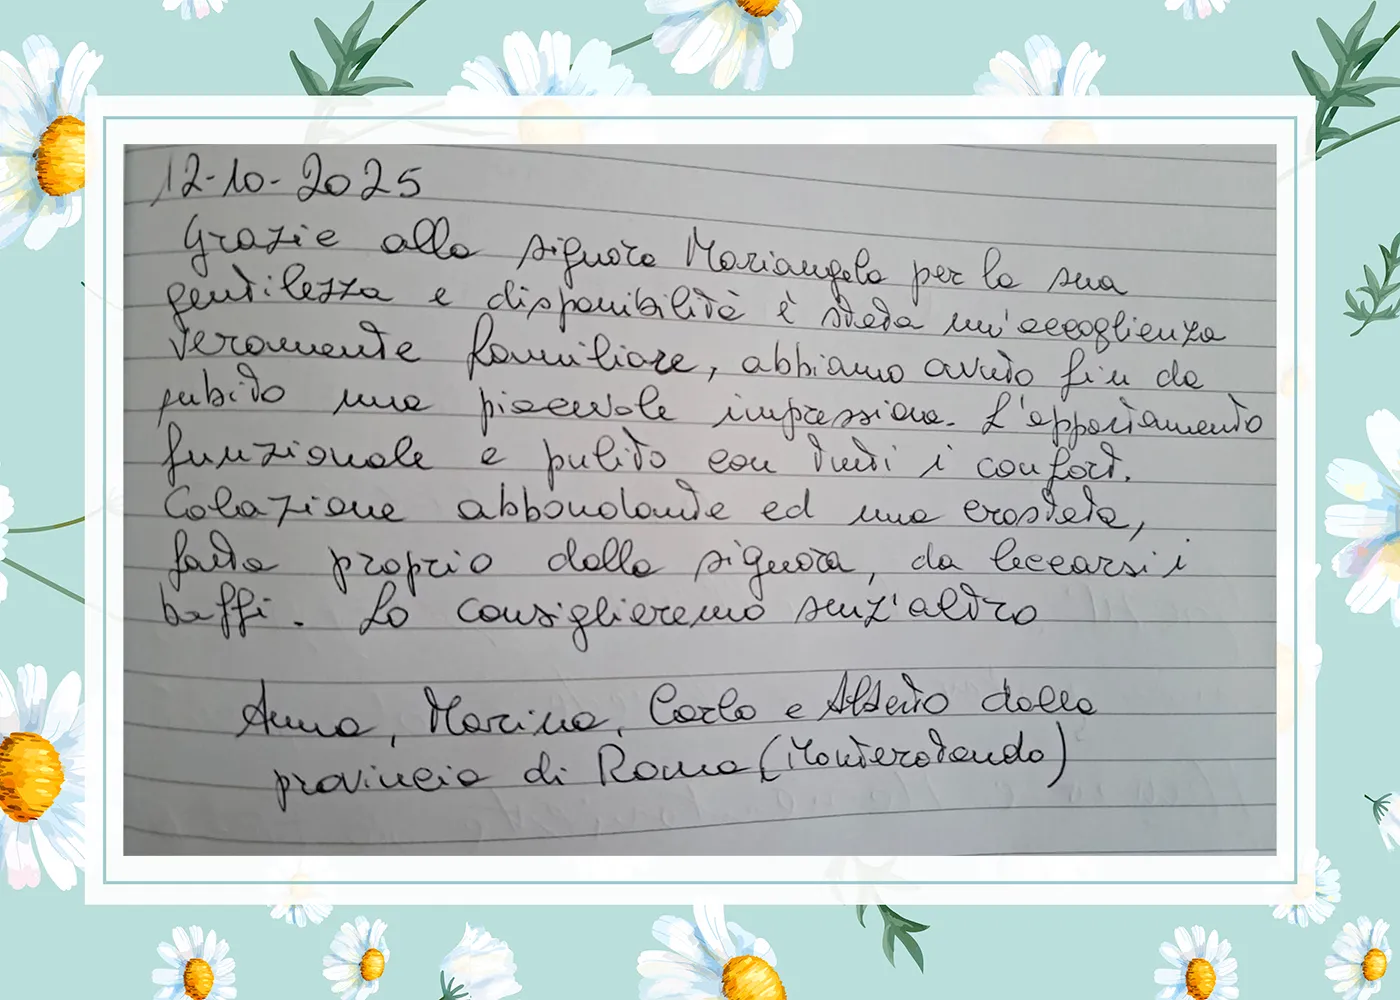 12-10-2025
Grazie alla signora Mariangela per la sua
gentilezza e disponibilità è stata un'accoglienza
veramente familiare, abbiamo avuto fin da
subito una piacevole impressione. L'appartamento
funzionale e pulito con tutti i confort.
Colazione abbondante ed una crostata,
fatta proprio dalla signora, da leccarsi i
baffi. Lo consiglieremo senz'altro
Anna, Marina, Carlo e Alberto dalla
provincia di Roma (Monterotondo)